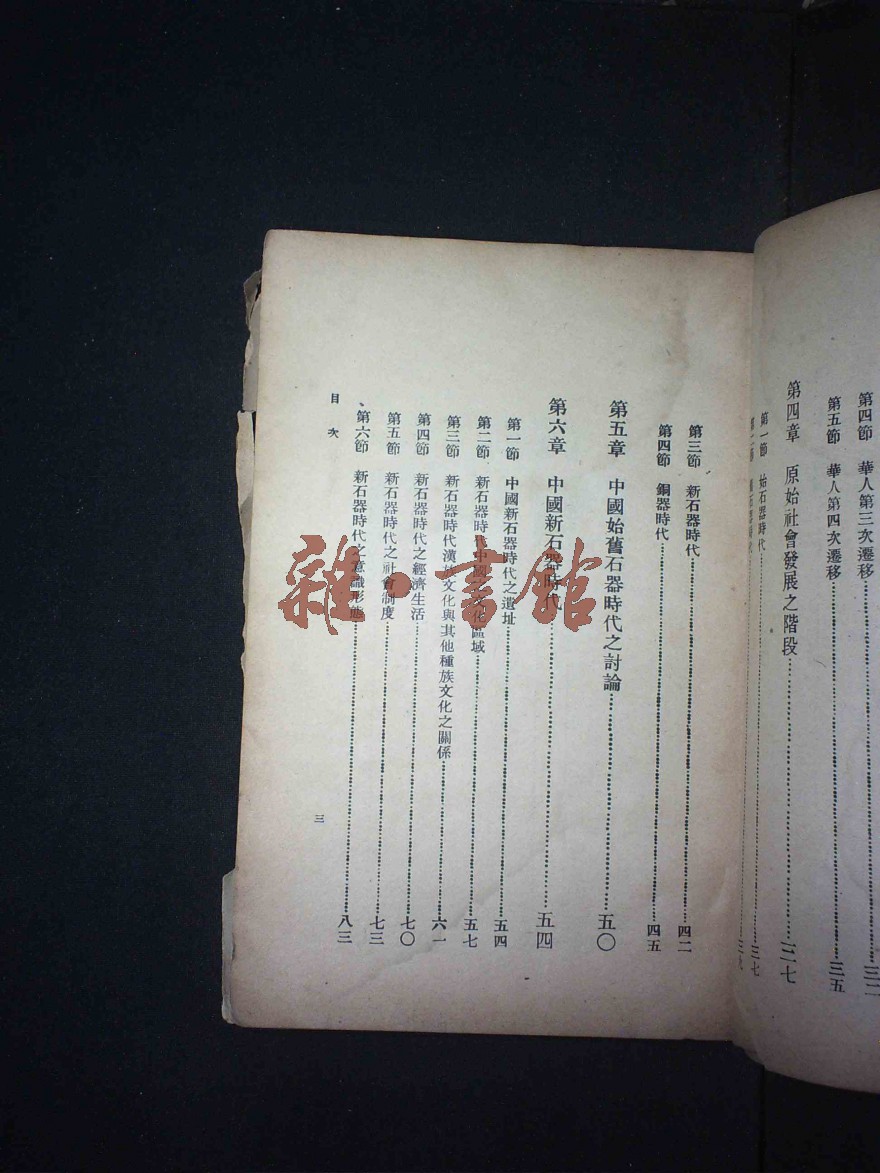 第四節 華人第三次遷移……三二
第五節 華人第四次遷移……三五
第四章 原始社會發展之階段……三七
第一節 始石器時代……三七
第三節 新石器時代……四二
第四節 銅器時代……四五
第五章 中國始舊石器時代之討論……五〇
第六章 中國新石器時代……五四
第一節 中國新石器時代之遺址……五四
第二節 新石器時代中國之文化區域……五七
第三節 新石器時代漢族文化與其他種族文化之關係……六一
第四節 新石器時代之經濟生活……七〇
第五節 新石器時代之社會制度……七三
第六節 新石器時代之意識形態……八三
目次
三
雜·書館